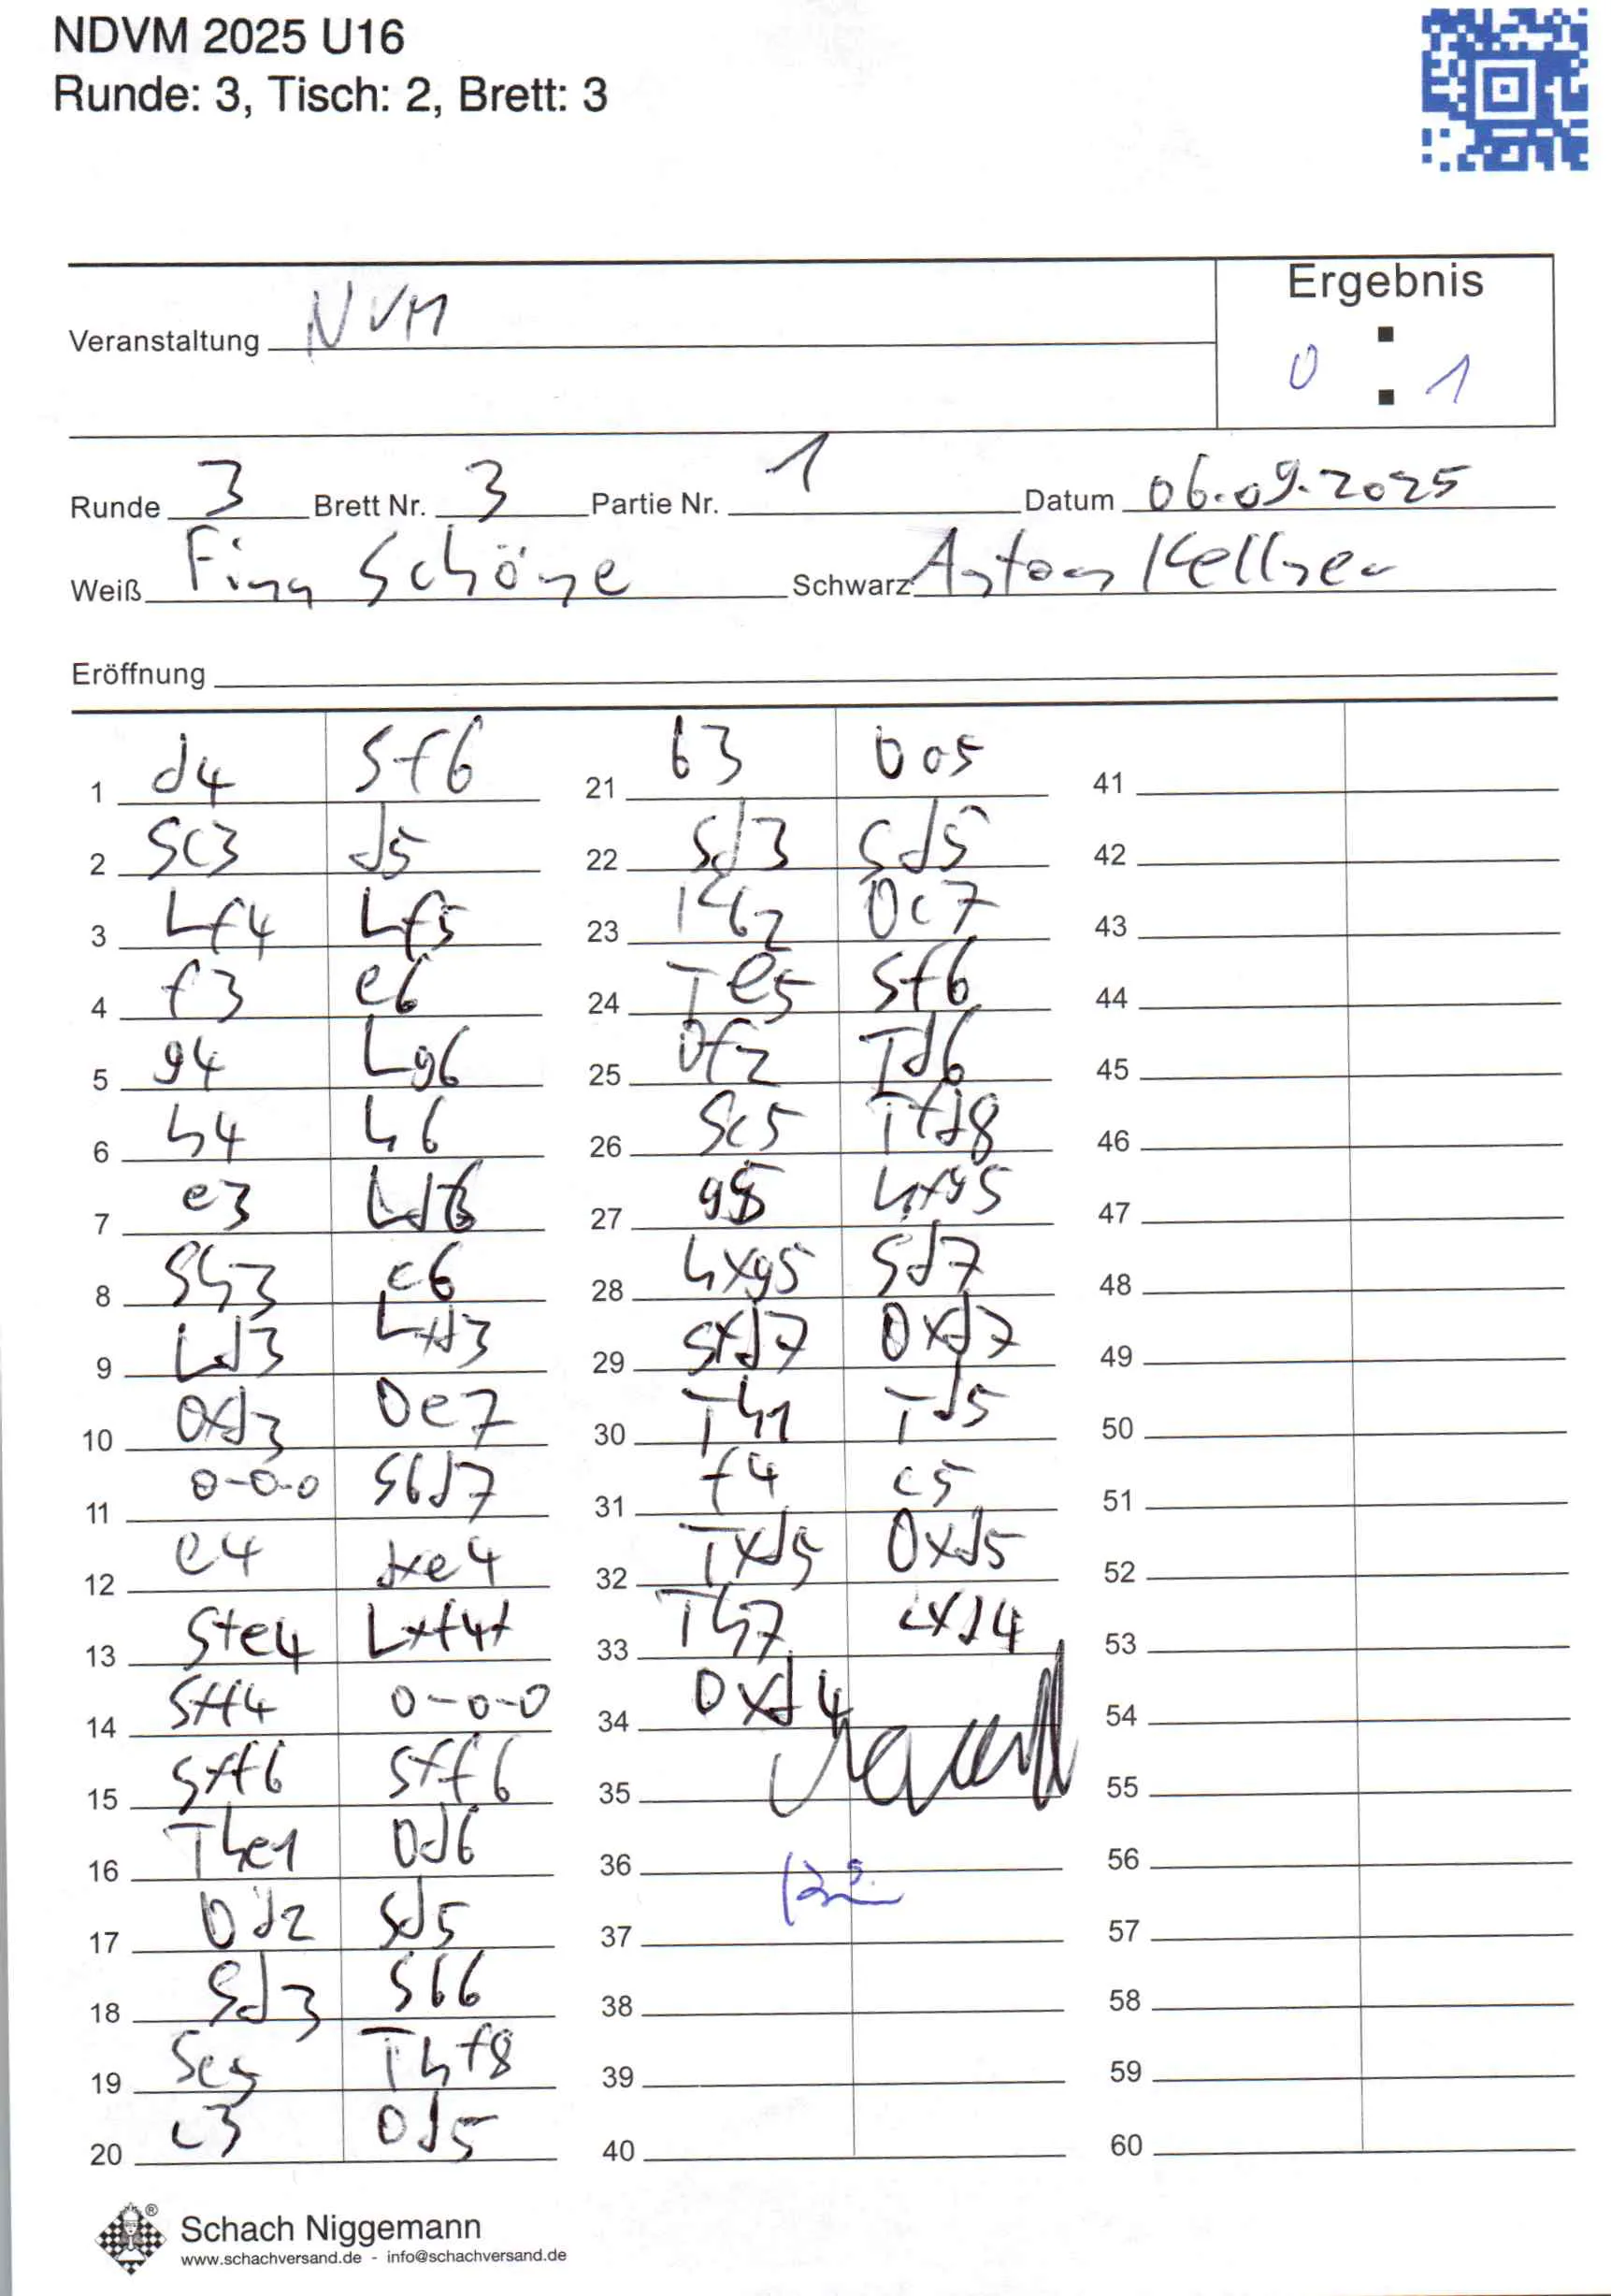 NDVM 2025 U16
Runde: 3, Tisch: 2, Brett: 3
Ergebnis
Veranstaltung NVM
0 : 1
Runde 3 Brett Nr. 3 Partie Nr. 1 Datum 06.09.2025
Weiß Finn Schöne Schwarz Anton Kellner
Eröffnung
1 d4 Sf6 21 b3 Da5 41
2 Sc3 d5 22 Sd3 Sd5 42
3 Lf4 Lf5 23 Kb2 Dc7 43
4 f3 e6 24 Te5 Sf6 44
5 g4 Lg6 25 Df2 Td6 45
6 h4 h6 26 Sc5 Tfd8 46
7 e3 Ld6 27 g5 hxg5 47
8 Sh3 c6 28 hxg5 Sd7 48
9 Ld3 Lxd3 29 Sxd7 Dxd7 49
10 Dxd3 De7 30 Th1 Td5 50
11 0-0-0 Sbd7 31 f4 c5 51
12 e4 dxe4 32 Txd5 Dxd5 52
13 Sxe4 Lxf4+ 33 Th7 cxd4 53
14 Sxf4 0-0-0 34 Dxd4 54
15 Sxf6 Sxf6 35 55
16 The1 Dd6 36 56
17 Dd2 Sd5 37 57
18 Sd3 Sb6 38 58
19 Sc5 Thf8 39 59
20 c3 Dd5 40 60
Schach Niggemann
www.schachversand.de - info@schachversand.de